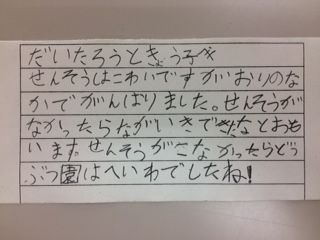 だいたろうときょう子へ
せんそうはこわいですがおりのな
かでがんばりました。せんそうが
なかったらながいきできたとおも
います。せんそうがこなかったらどう
ぶつ園はへいわでしたね!